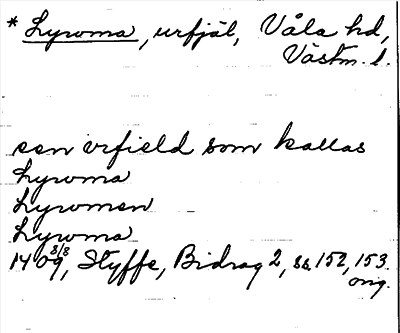 * Lyroma, urfjäl, Våla hd,
Västm. l.
een vrfield som kallas
Lyroma
Lyromen
Lyroma
1409 8/8, Styffe, Bidrag 2, ss 152, 153.
orig.